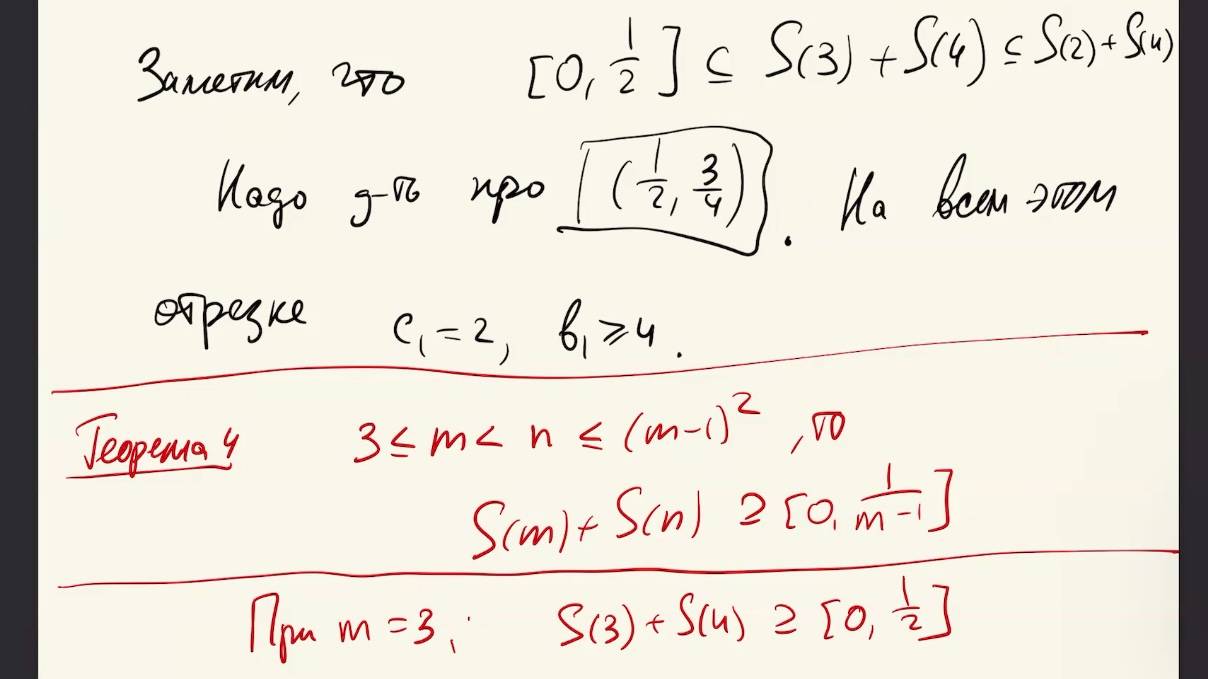 Заметим, что [0, 1/2] ⊆ S(3) + S(4) ⊆ S(2) + S(4)
Надо д-ть про (1/2, 3/4). На всем этом
отрезке c₁ = 2, b₁ ⩾ 4.
Теорема 4 3 ≤ m < n ≤ (m-1)², то
S(m) + S(n) ⊇ [0, 1/(m-1)]
При m = 3, S(3) + S(4) ⊇ [0, 1/2]